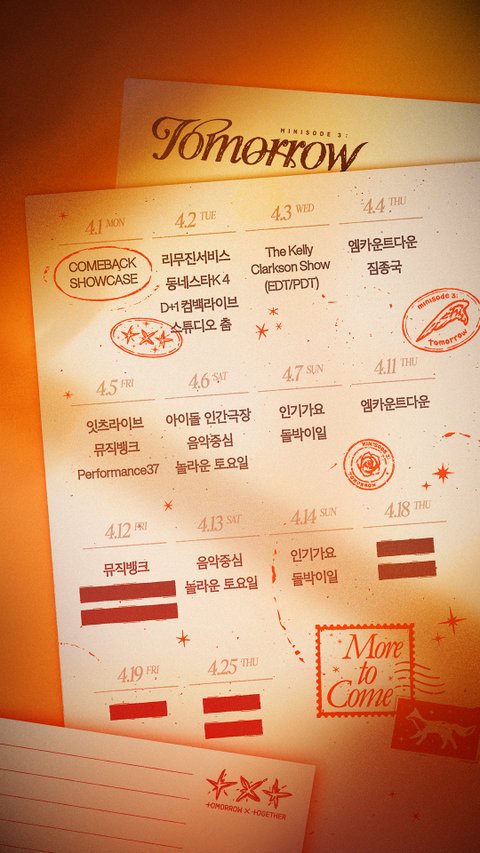 MINISODE 3:
Tomorrow
4.1 MON
COMEBACK
SHOWCASE
4.2 TUE
리무진서비스
동네스타K 4
D+1 컴백라이브
스튜디오 춤
4.3 WED
The Kelly
Clarkson Show
(EDT/PDT)
4.4 THU
엠카운트다운
짐종국
minisode 3:
Tomorrow
4.5 FRI
잇츠라이브
뮤직뱅크
Performance37
4.6 SAT
아이돌 인간극장
음악중심
놀라운 토요일
4.7 SUN
인기가요
돌박이일
4.11 THU
엠카운트다운
MINISODE 3:
TOMORROW
4.12 FRI
뮤직뱅크
4.13 SAT
음악중심
놀라운 토요일
4.14 SUN
인기가요
돌박이일
4.18 THU
4.19 FRI
4.25 THU
More
to
Come
TOMORROW X TOGETHER